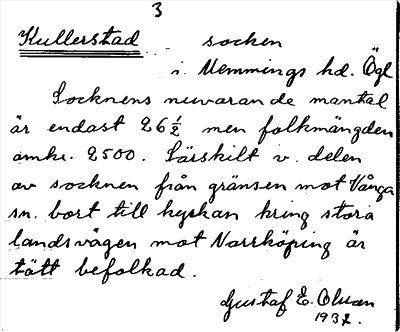 3
Kullerstad socken
i Memmings hd. Ögl
Socknens nuvarande mantal
är endast 26 1/2 men folkmängden
omkr. 2500. Särskilt v. delen
av socknen från gränsen mot Vånga
sn. bort till kyrkan kring stora
landsvägen mot Norrköping är
tätt befolkad.
Gustaf E. Olsson
1932.